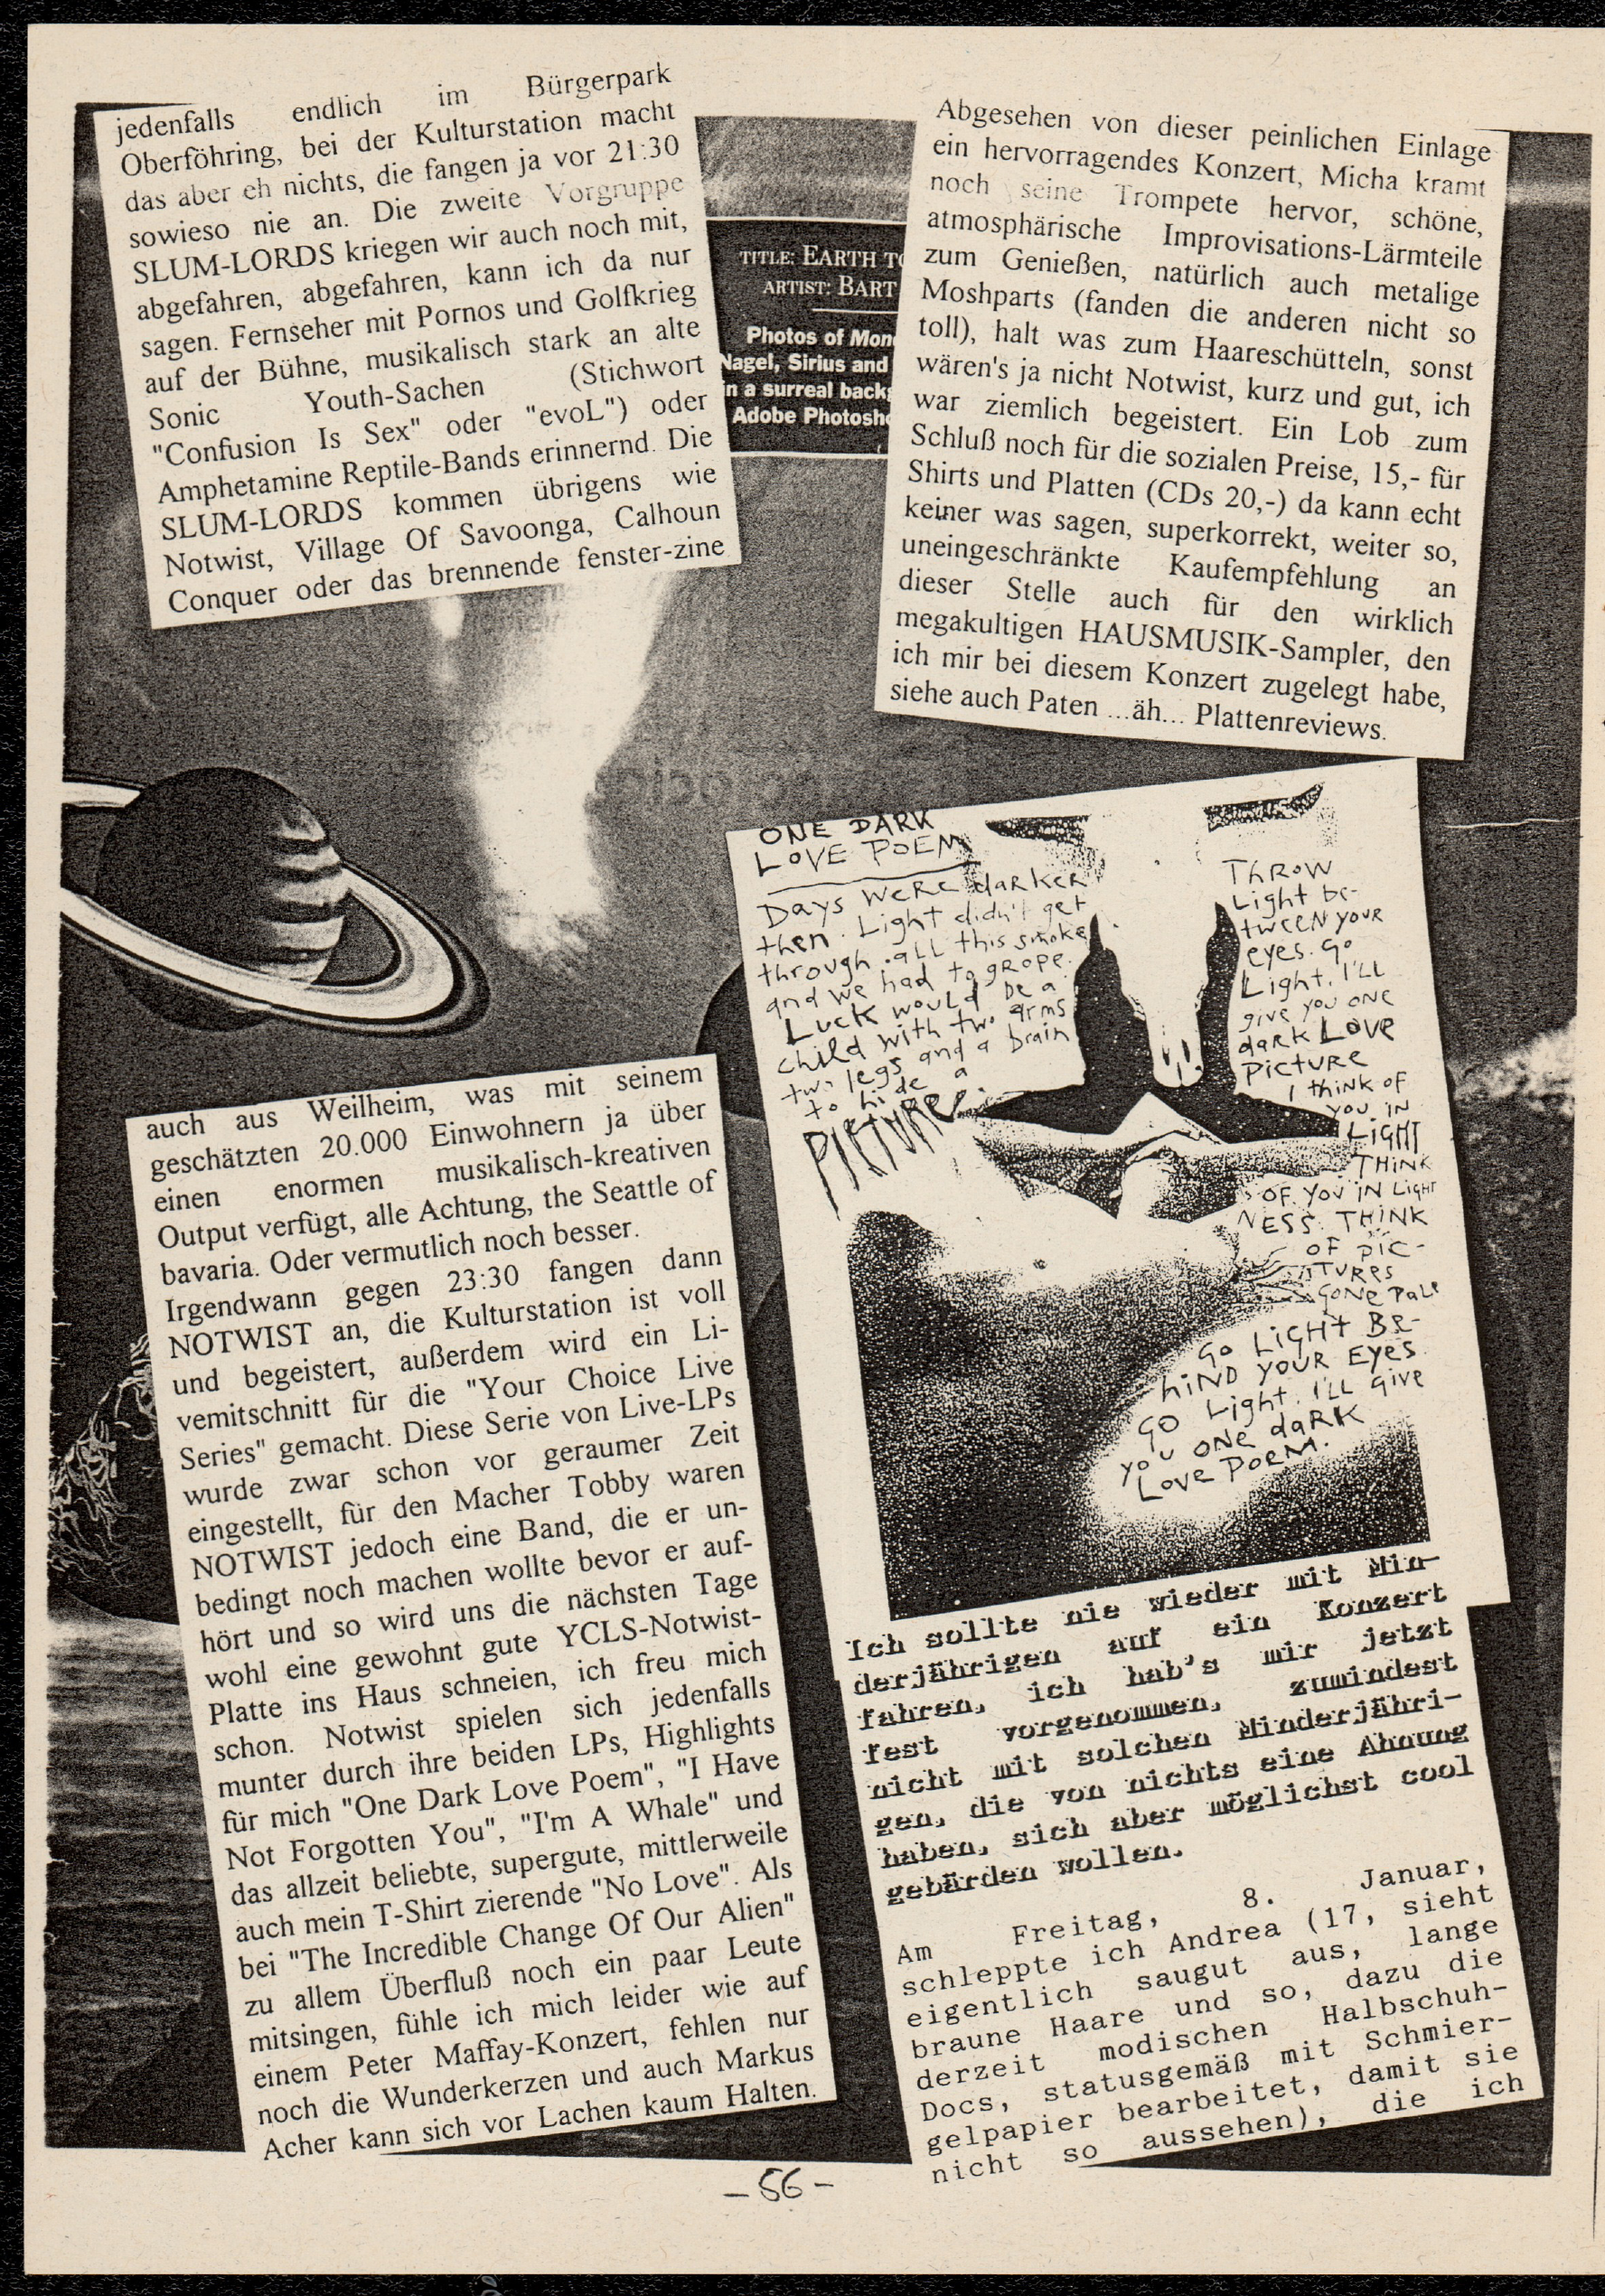 jedenfalls endlich im Bürgerpark
Oberföhring, bei der Kulturstation macht
das aber eh nichts, die fangen ja vor 21:30
sowieso nie an. Die zweite Vorgruppe
SLUM-LORDS kriegen wir auch noch mit,
abgefahren, abgefahren, kann ich da nur
sagen. Fernseher mit Pornos und Golfkrieg
auf der Bühne, musikalisch stark an alte
Sonic Youth-Sachen (Stichwort
"Confusion Is Sex" oder "evoL") oder
Amphetamine Reptile-Bands erinnernd. Die
SLUM-LORDS kommen übrigens wie
Notwist, Village Of Savoonga, Calhoun
Conquer oder das brennende fenster-zine
auch aus Weilheim, was mit seinem
geschätzten 20.000 Einwohnern ja über
einen enormen musikalisch-kreativen
Output verfügt, alle Achtung, the Seattle of
bavaria. Oder vermutlich noch besser.
Irgendwann gegen 23:30 fangen dann
NOTWIST an, die Kulturstation ist voll
und begeistert, außerdem wird ein Li-
vemitschnitt für die "Your Choice Live
Series" gemacht. Diese Serie von Live-LPs
wurde zwar schon vor geraumer Zeit
eingestellt, für den Macher Tobby waren
NOTWIST jedoch eine Band, die er un-
bedingt noch machen wollte bevor er auf-
hört und so wird uns die nächsten Tage
wohl eine gewohnt gute YCLS-Notwist-
Platte ins Haus schneien, ich freu mich
schon. Notwist spielen sich jedenfalls
munter durch ihre beiden LPs, Highlights
für mich "One Dark Love Poem", "I Have
Not Forgotten You", "I'm A Whale" und
das allzeit beliebte, supergute, mittlerweile
auch mein T-Shirt zierende "No Love". Als
bei "The Incredible Change Of Our Alien"
zu allem Überfluß noch ein paar Leute
mitsingen, fühle ich mich leider wie auf
einem Peter Maffay-Konzert, fehlen nur
noch die Wunderkerzen und auch Markus
Acher kann sich vor Lachen kaum Halten.
TITLE: EARTH TO
ARTIST: BART
Photos of Mon
Nagel, Sirius and
in a surreal back
Adobe Photosho
Abgesehen von dieser peinlichen Einlage
ein hervorragendes Konzert, Micha kramt
noch seine Trompete hervor, schöne,
atmosphärische Improvisations-Lärmteile
zum Genießen, natürlich auch metalige
Moshparts (fanden die anderen nicht so
toll), halt was zum Haareschütteln, sonst
wären's ja nicht Notwist, kurz und gut, ich
war ziemlich begeistert. Ein Lob zum
Schluß noch für die sozialen Preise, 15,- für
Shirts und Platten (CDs 20,-) da kann echt
keiner was sagen, superkorrekt, weiter so,
uneingeschränkte Kaufempfehlung an
dieser Stelle auch für den wirklich
megakultigen HAUSMUSIK-Sampler, den
ich mir bei diesem Konzert zugelegt habe,
siehe auch Paten ...äh... Plattenreviews.
ONE DARK
LOVE POEM
Days were darker
then. Light didn't get
through all this smoke
and we had to grope.
Luck would be a
child with two arms
two legs and a brain
to hide a
PICTURE.
THROW
Light be-
tween your
eyes. go
Light. I'll
give you one
dark Love
Picture
I think of
you in
LIGHT
THINK
OF YOU IN LIGHT
NESS. THINK
OF PIC-
TURES
GONE PALE
GO LIGHT BE-
HIND YOUR EYES
GO Light. I'll give
you one dark
Love Poem.
Ich sollte nie wieder mit Min-
derjährigen auf ein Konzert
fahren, ich hab's mir jetzt
fest vorgenommen, zumindest
nicht mit solchen Minderjähri-
gen, die von nichts eine Ahnung
haben, sich aber möglichst cool
gebärden wollen.
Am Freitag, 8. Januar,
schleppte ich Andrea (17, sieht
eigentlich saugut aus, lange
braune Haare und so, dazu die
derzeit modischen Halbschuh-
Docs, statusgemäß mit Schmier-
gelpapier bearbeitet, damit sie
nicht so aussehen), die ich
- 56 -